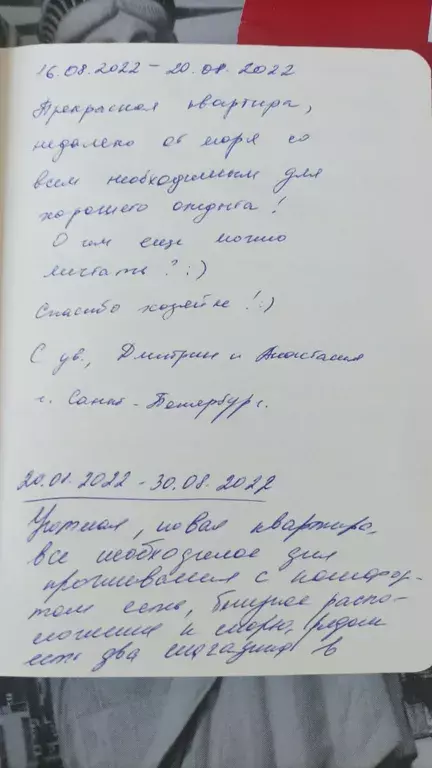 16.08.2022 – 20.08.2022
Прекрасная квартира,
недалеко от моря со
всем необходимым для
хорошего отдыха!
О чем ещё можно
мечтать? :)
Спасибо хозяйке! :)
С ув., Дмитрий и Анастасия
г. Санкт-Петербург.
20.08.2022 - 30.08.2022
Уютная, новая квартира,
все необходимое для
проживания с комфор-
том есть, близкое распо-
ложение к морю, рядом
есть два магазина в